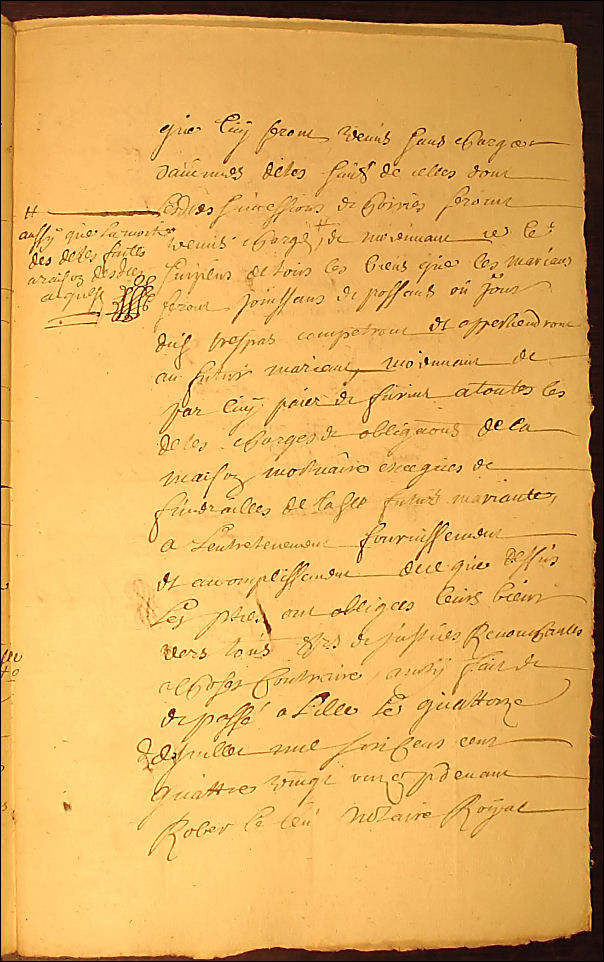 que luy seront venus sans charge et
d'aucunes debtes sauf de celles dont
lesdites successions de hoiries seront
venus chargé, # de moiennant ce le
surplus de tous les biens que les marians
seront jouissans de possans où jour
dud trespas competront et apprehendront
au futur mariant, moiennant de
par luy paier de furnir a toutes les
debtes charges de obligaons de la
maison mortuaire exeques de
funerailles de lad futur mariante,
a l'entretenement fournissement
et accomplissement de ce que dessus
les pties ont obligees leurs biens
vers tous de justices Renonchantes
a choses Contraires, ainsy fait de
de passé a Lille le quattorze
de juillet mil six cens
quattres vingt pdevant
Rober le notaire Royal
#
aussy que la moitié
des debtes faites
a raison desdits
acquests